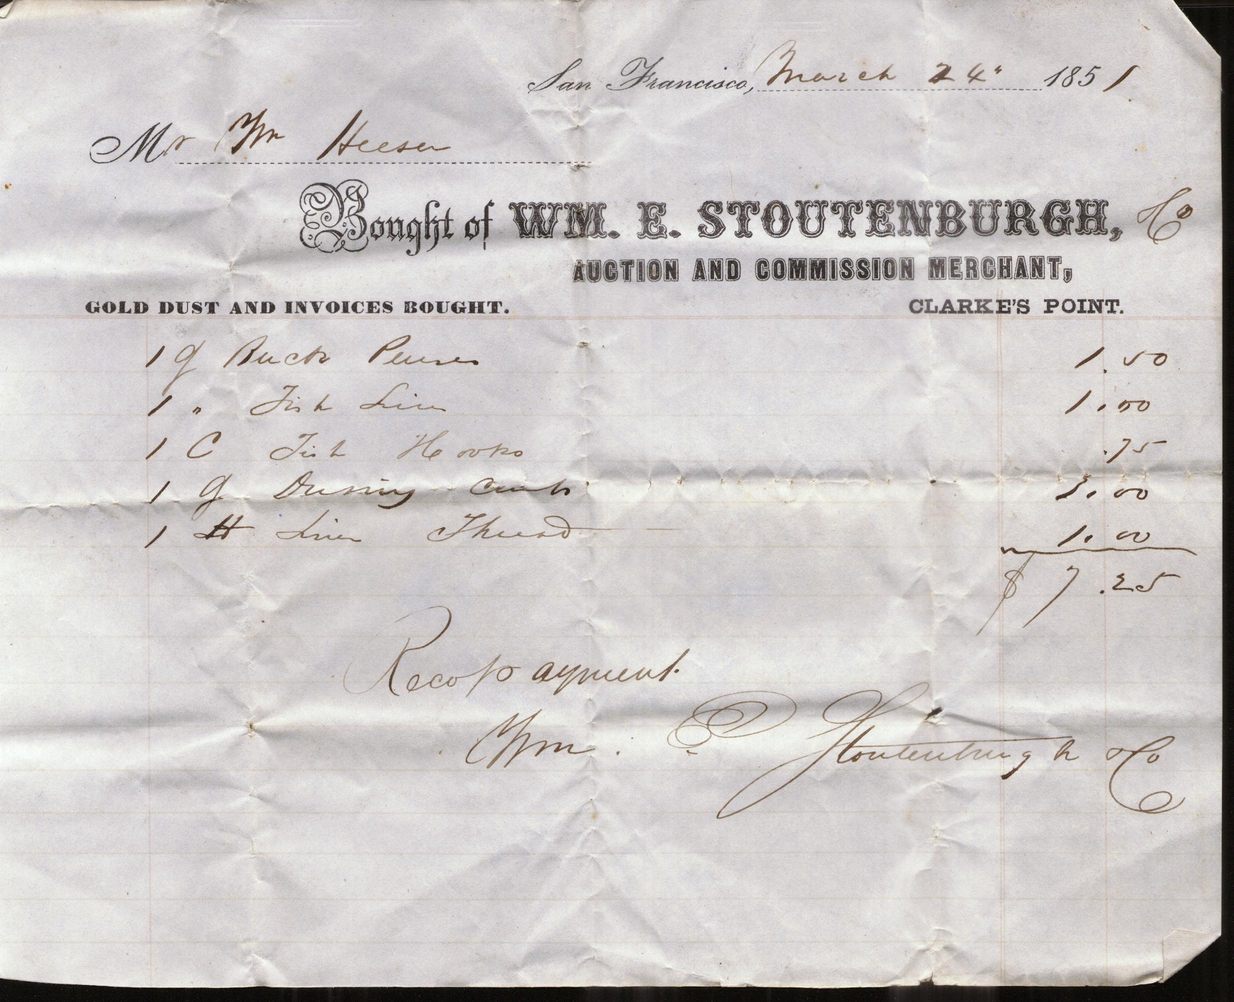 San Francisco, March 24" 1851
Mr Wm Heeser
Bought of WM. E. STOUTENBURGH, & Co
AUCTION AND COMMISSION MERCHANT,
GOLD DUST AND INVOICES BOUGHT. CLARKE'S POINT.
1 g Buck Purses 1.50
1 " Fish Line 1.00
1 C Fish Hooks .75
1 g 3.00
1 Thread 1.00
$ 7.25
Rec payment
Wm. E Stoutenburgh & Co